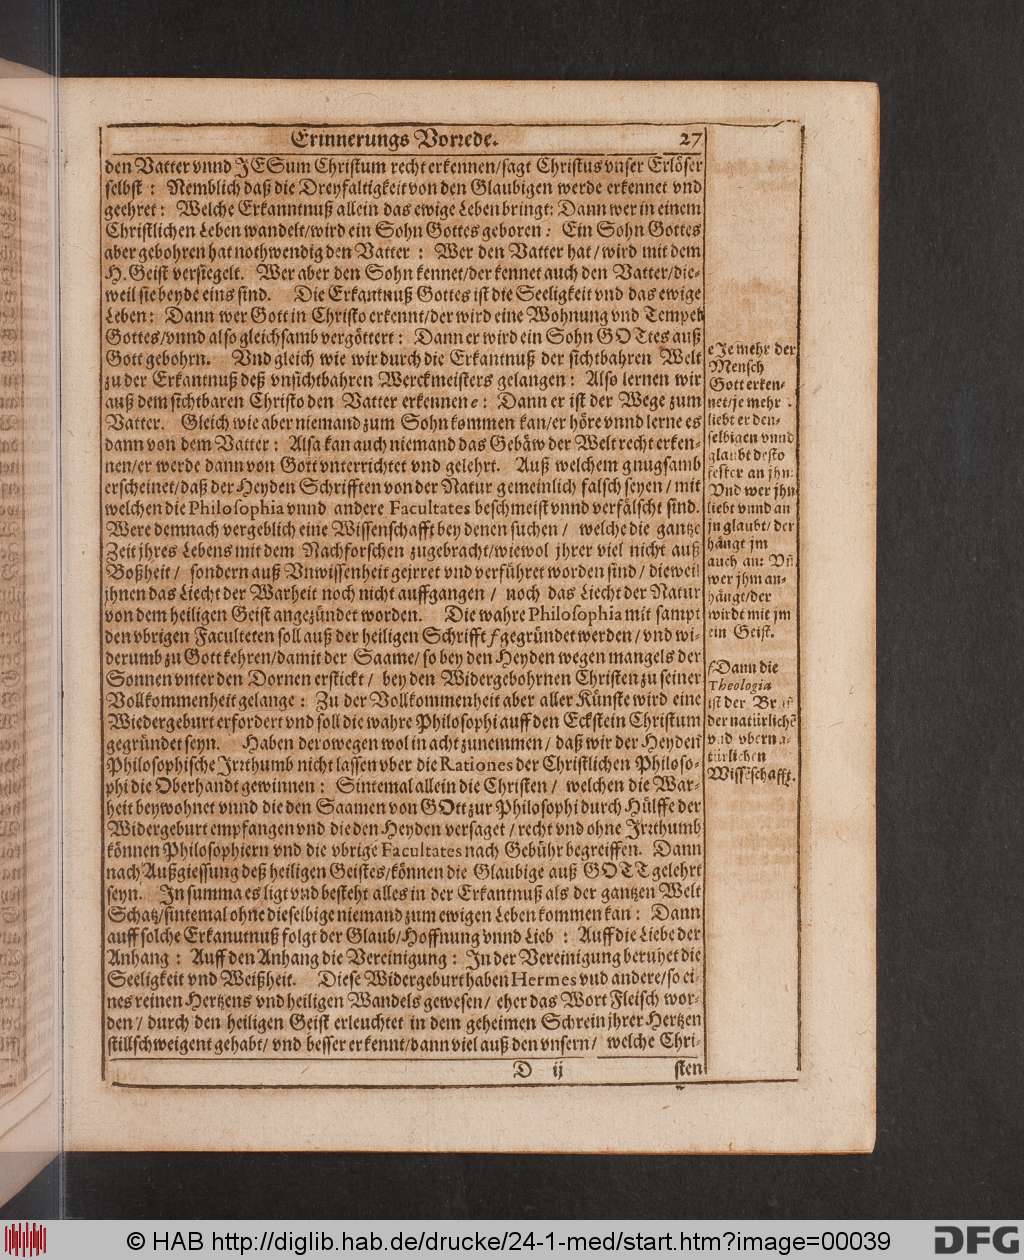 Erinnerungs Vorrede. 27
den Vatter vnnd JESum Christum recht erkennen/sagt Christus vnser Erlöser
selbst : Nemblich daß die Dreyfaltigkeit von den Glaubigen werde erkennet vnd
geehret : Welche Erkanntnuß allein das ewige Leben bringt: Dann wer in einem
Christlichen Leben wandelt/wird ein Sohn Gottes geboren : Ein Sohn Gottes
aber gebohren hat nothwendig den Vatter : Wer den Vatter hat / wird mit dem
H. Geist versiegelt. Wer aber den Sohn kennet/der kennet auch den Vatter/die-
weil sie beyde eins sind. Die Erkantnuß Gottes ist die Seeligkeit vnd das ewige
Leben : Dann wer Gott in Christo erkennt/der wird eine Wohnung vnd Tempel
Gottes/vnnd also gleichsamb vergöttert : Dann er wird ein Sohn GOTtes auß
Gott gebohrn. Vnd gleich wie wir durch die Erkantnuß der sichtbahren Welt
zu der Erkantnuß deß vnsichtbahren Werckmeisters gelangen : Also lernen wir
auß dem sichtbaren Christo den Vatter erkennen e : Dann er ist der Wege zum
Vatter. Gleich wie aber niemand zum Sohn kommen kan/er höre vnnd lerne es
dann von dem Vatter : Alsa kan auch niemand das Gebäw der Welt recht erken-
nen/er werde dann von Gott vnterrichtet vnd gelehrt. Auß welchem gnugsamb
erscheinet/daß der Heyden Schrifften von der Natur gemeinlich falsch seyen / mit
welchen die Philosophia vnnd andere Facultates beschmeist vnnd verfälscht sind.
Were demnach vergeblich eine Wissenschafft bey denen suchen / welche die gantze
Zeit jhres Lebens mit dem Nachforschen zugebracht/wiewol jhrer viel nicht auß
Boßheit / sondern auß Vnwissenheit gejrret vnd verführet worden sind / dieweil
jhnen das Liecht der Warheit noch nicht auffgangen / noch das Liecht der Natur
von dem heiligen Geist angezündet worden. Die wahre Philosophia mit sampt
den vbrigen Faculteten soll auß der heiligen Schrifft f gegründet werden / vnd wi-
derumb zu Gott kehren/damit der Saame/ so bey den Heyden wegen mangels der
Sonnen vnter den Dornen erstickt / bey den Widergebohrnen Christen zu seiner
Vollkommenheit gelange : Zu der Vollkommenheit aber aller Künste wird eine
Wiedergeburt erfordert vnd soll die wahre Philosophi auff den Eckstein Christum
gegründet seyn. Haben derowegen wol in acht zunemmen / daß wir der Heyden
Philosophische Irrthumb nicht lassen vber die Rationes der Christlichen Philoso-
phi die Oberhandt gewinnen : Sintemal allein die Christen / welchen die War-
heit beywohnet vnnd die den Saamen von GOtt zur Philosophi durch Hülffe der
Widergeburt empfangen vnd die den Heyden versaget / recht vnd ohne Irrthumb
können Philosophiern vnd die vbrige Facultates nach Gebühr begreiffen. Dann
nach Außgiessung deß heiligen Geistes/können die Glaubige auß GOTT gelehrt
seyn. In summa es ligt vnd besteht alles in der Erkantnuß als der gantzen Welt
Schatz/sintemal ohne dieselbige niemand zum ewigen Leben kommen kan : Dann
auff solche Erkanutnuß folgt der Glaub/Hoffnung vnnd Lieb : Auff die Liebe der
Anhang : Auff den Anhang die Vereinigung : In der Vereinigung beruhet die
Seeligkeit vnd Weißheit. Diese Widergeburt haben Hermes vud andere/so ei-
nes reinen Hertzens vnd heiligen Wandels gewesen / eher das Wort Fleisch wor-
den / durch den heiligen Geist erleuchtet in dem geheimen Schrein jhrer Hertzen
stillschweigent gehabt/ vnd besser erkennt/dann viel auß den vnsern / welche Chri-
D ij sten
e Je mehr der
Mensch
Gott erken-
net/je mehr
liebt er den-
selbigen vnnd
glaubt desto
fester an jhn:
Vnd wer jhn
liebt vnnd an
jn glaubt/ der
hängt jm
auch an: Vñ
wer jhm an-
hängt/der
wirdt mit jm
ein Geist.
f Dann die
Theologia
ist der
der natürlichē
vnd vberna-
türlichen
Wissēschafft.
© HAB http://diglib.hab.de/drucke/24-1-med/start.htm?image=00039
DFG